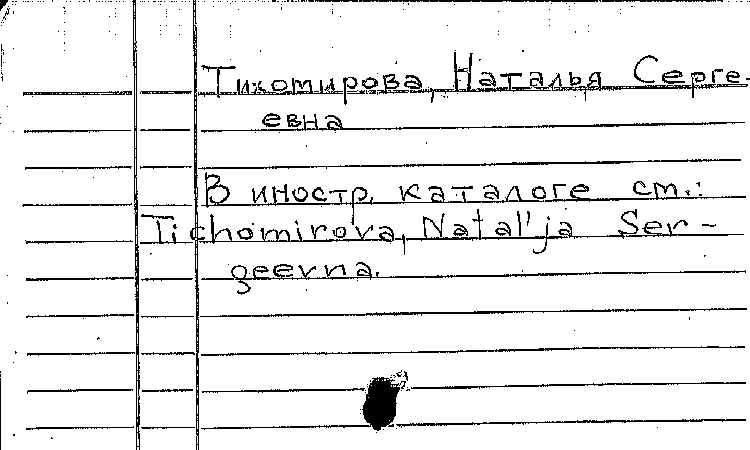 Тихомирова, Наталья Серге-
евна
В иностр. каталоге см.:
Tichomirova, Natal'ja Ser-
geevna.